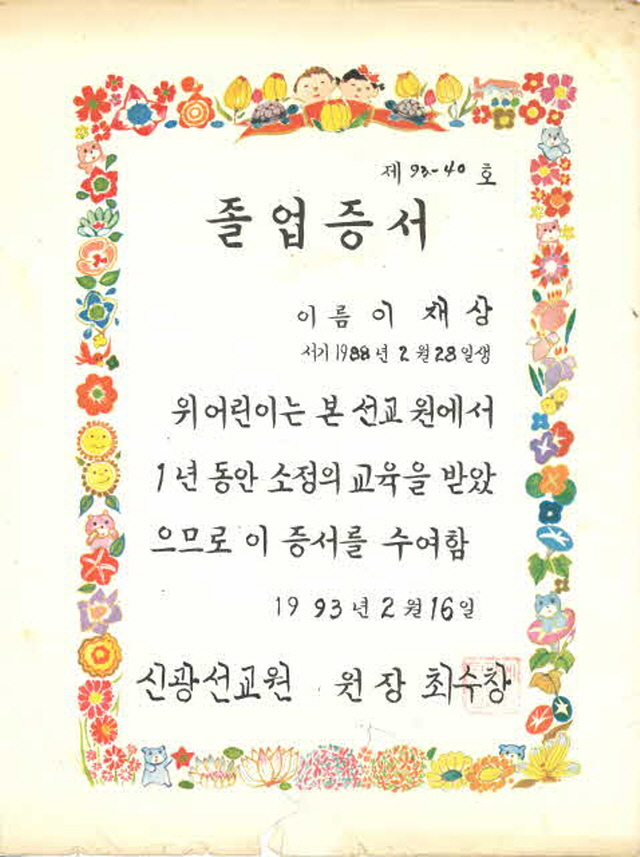 제 93-40 호
졸업증서
이름 이 재상
서기 1988년 2월 23일생
위 어린이는 본 선교원에서
1년 동안 소정의 교육을 받았
으므로 이 증서를 수여함
1993년 2월 16일
신광선교원 원장 최수창